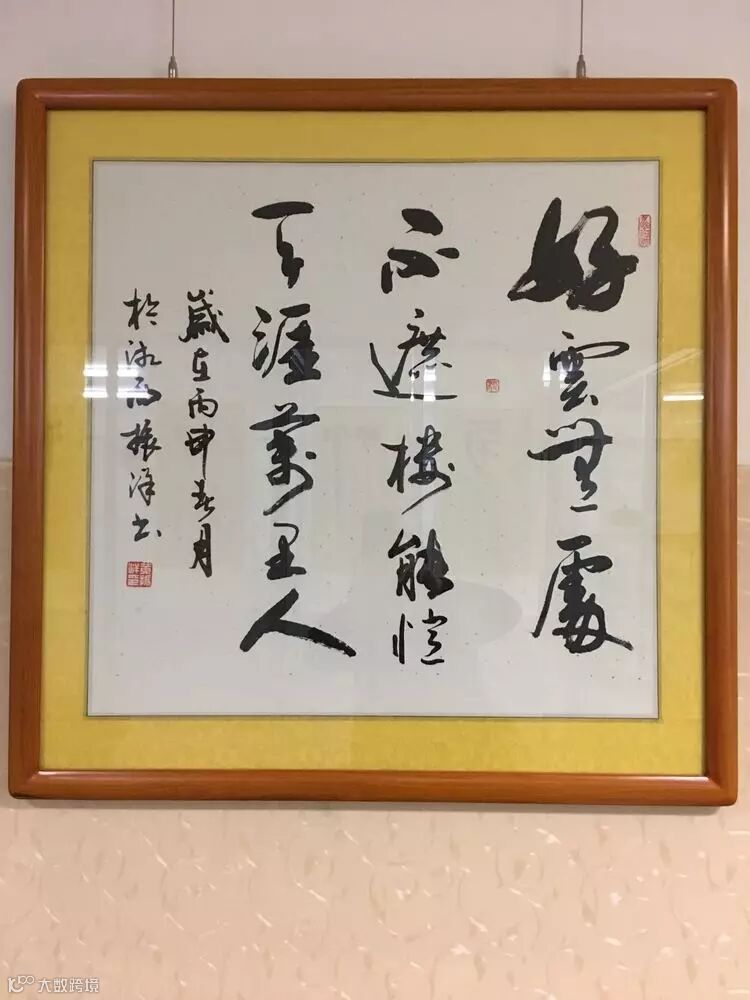 好雲無處
不遮樓能憶
天涯萬里人
歲在丙申春月
於 振洋书
大数跨境